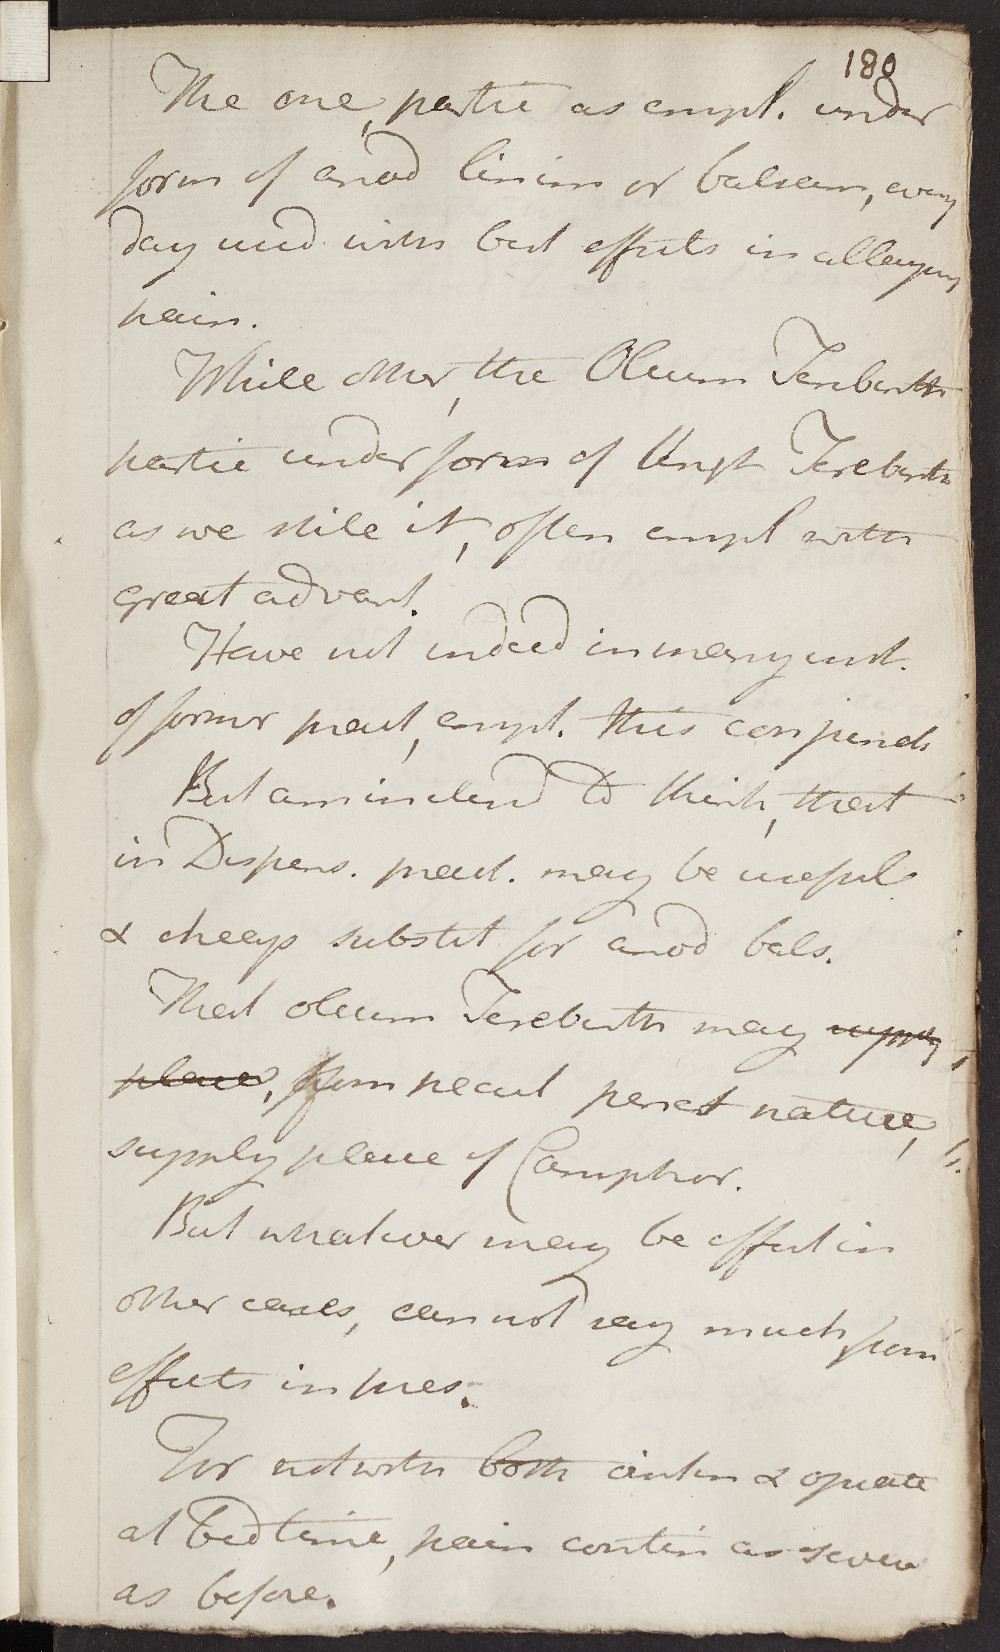 180
The one, partic as empl. under
form of anod linim or balsam, every
day used with best effects in allaying
pain.
While other, the Oleum Terebinth
partic under form of Ungt Terebinth
as we stile it, often empl with
great advant.
Have not indeed in many inst.
of former pract, empl. this conjunct
But am inclined to think, that
in Dispens. pract. may be useful
& cheap substit for anod bals.
That oleum Terebinth may supply
place, from pecul penet nature,
supply place of Camphor.
But whatever may be effect in
other cases, can not say much from
effects in pres.
For notwith both ointm & opiate
at bedtime, pain contin as severe
as before.